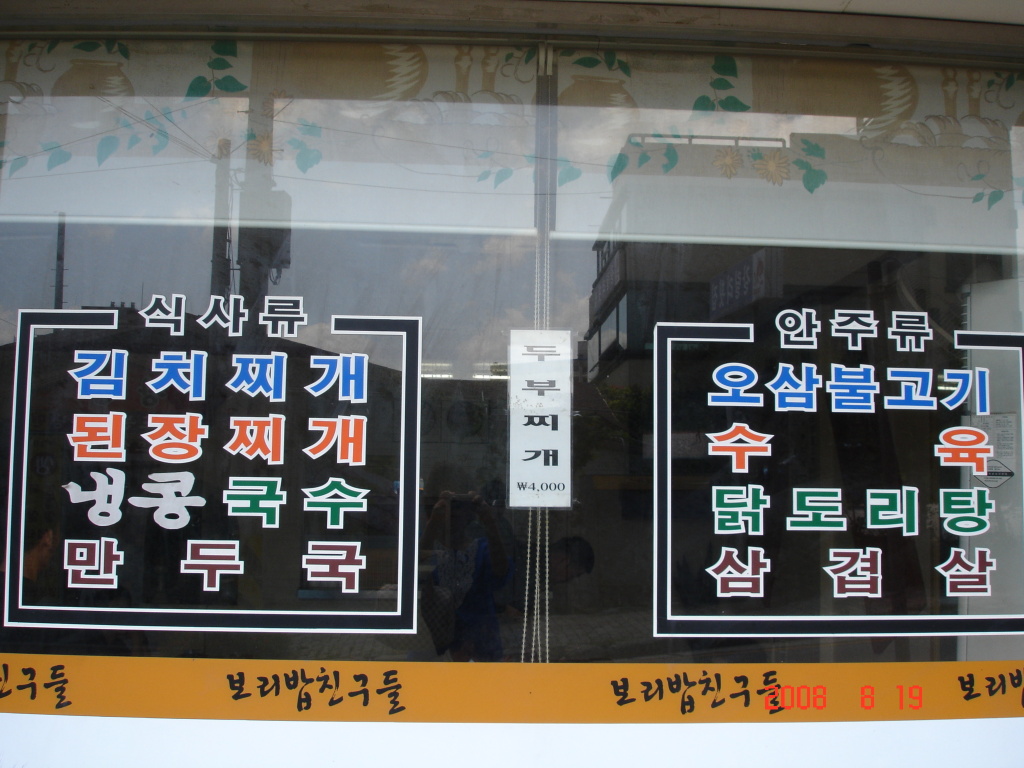 식사류
김치찌개
된장찌개
냉콩국수
만두국
두부찌개
₩4,000
안주류
오삼불고기
수육
닭도리탕
삼겹살
친구들
보리밥친구들
보리밥친구들
보리밥
2008 8 19